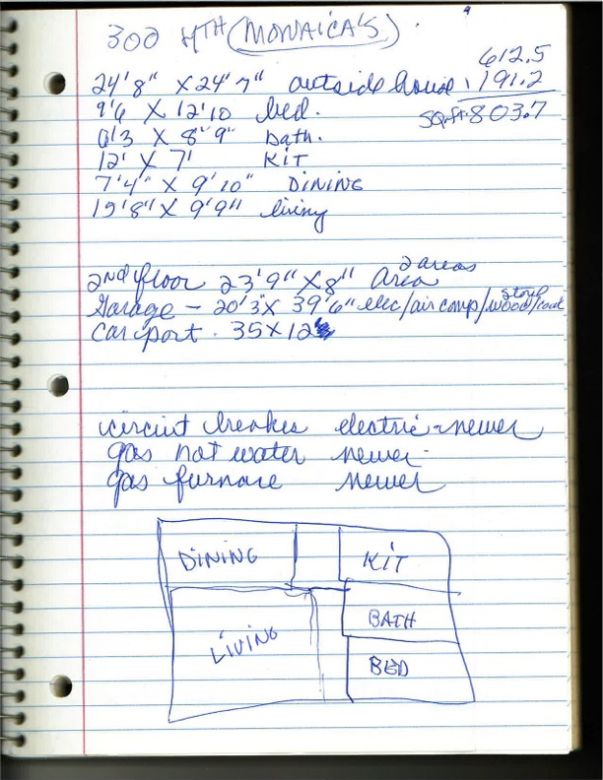 300 4TH (MONAICA'S)
612.5
24'8" X 24'7" outside house 191.2
9'6 X 12'10 bed. SQ.ft. 803.7
6'3 X 8'9" bath.
12' X 7' KIT
7'4" X 9'10" DINING
19'8" X 9'9" living
2nd floor 23'9" X 8" area 2 areas
Garage - 20'3" X 39'6" elec/air comp/wood/coal stove
Carport - 35 X 12
circuit breakes electric - newer
gas hot water newer
gas furnace newer
DINING KIT
BATH
LIVING
BED